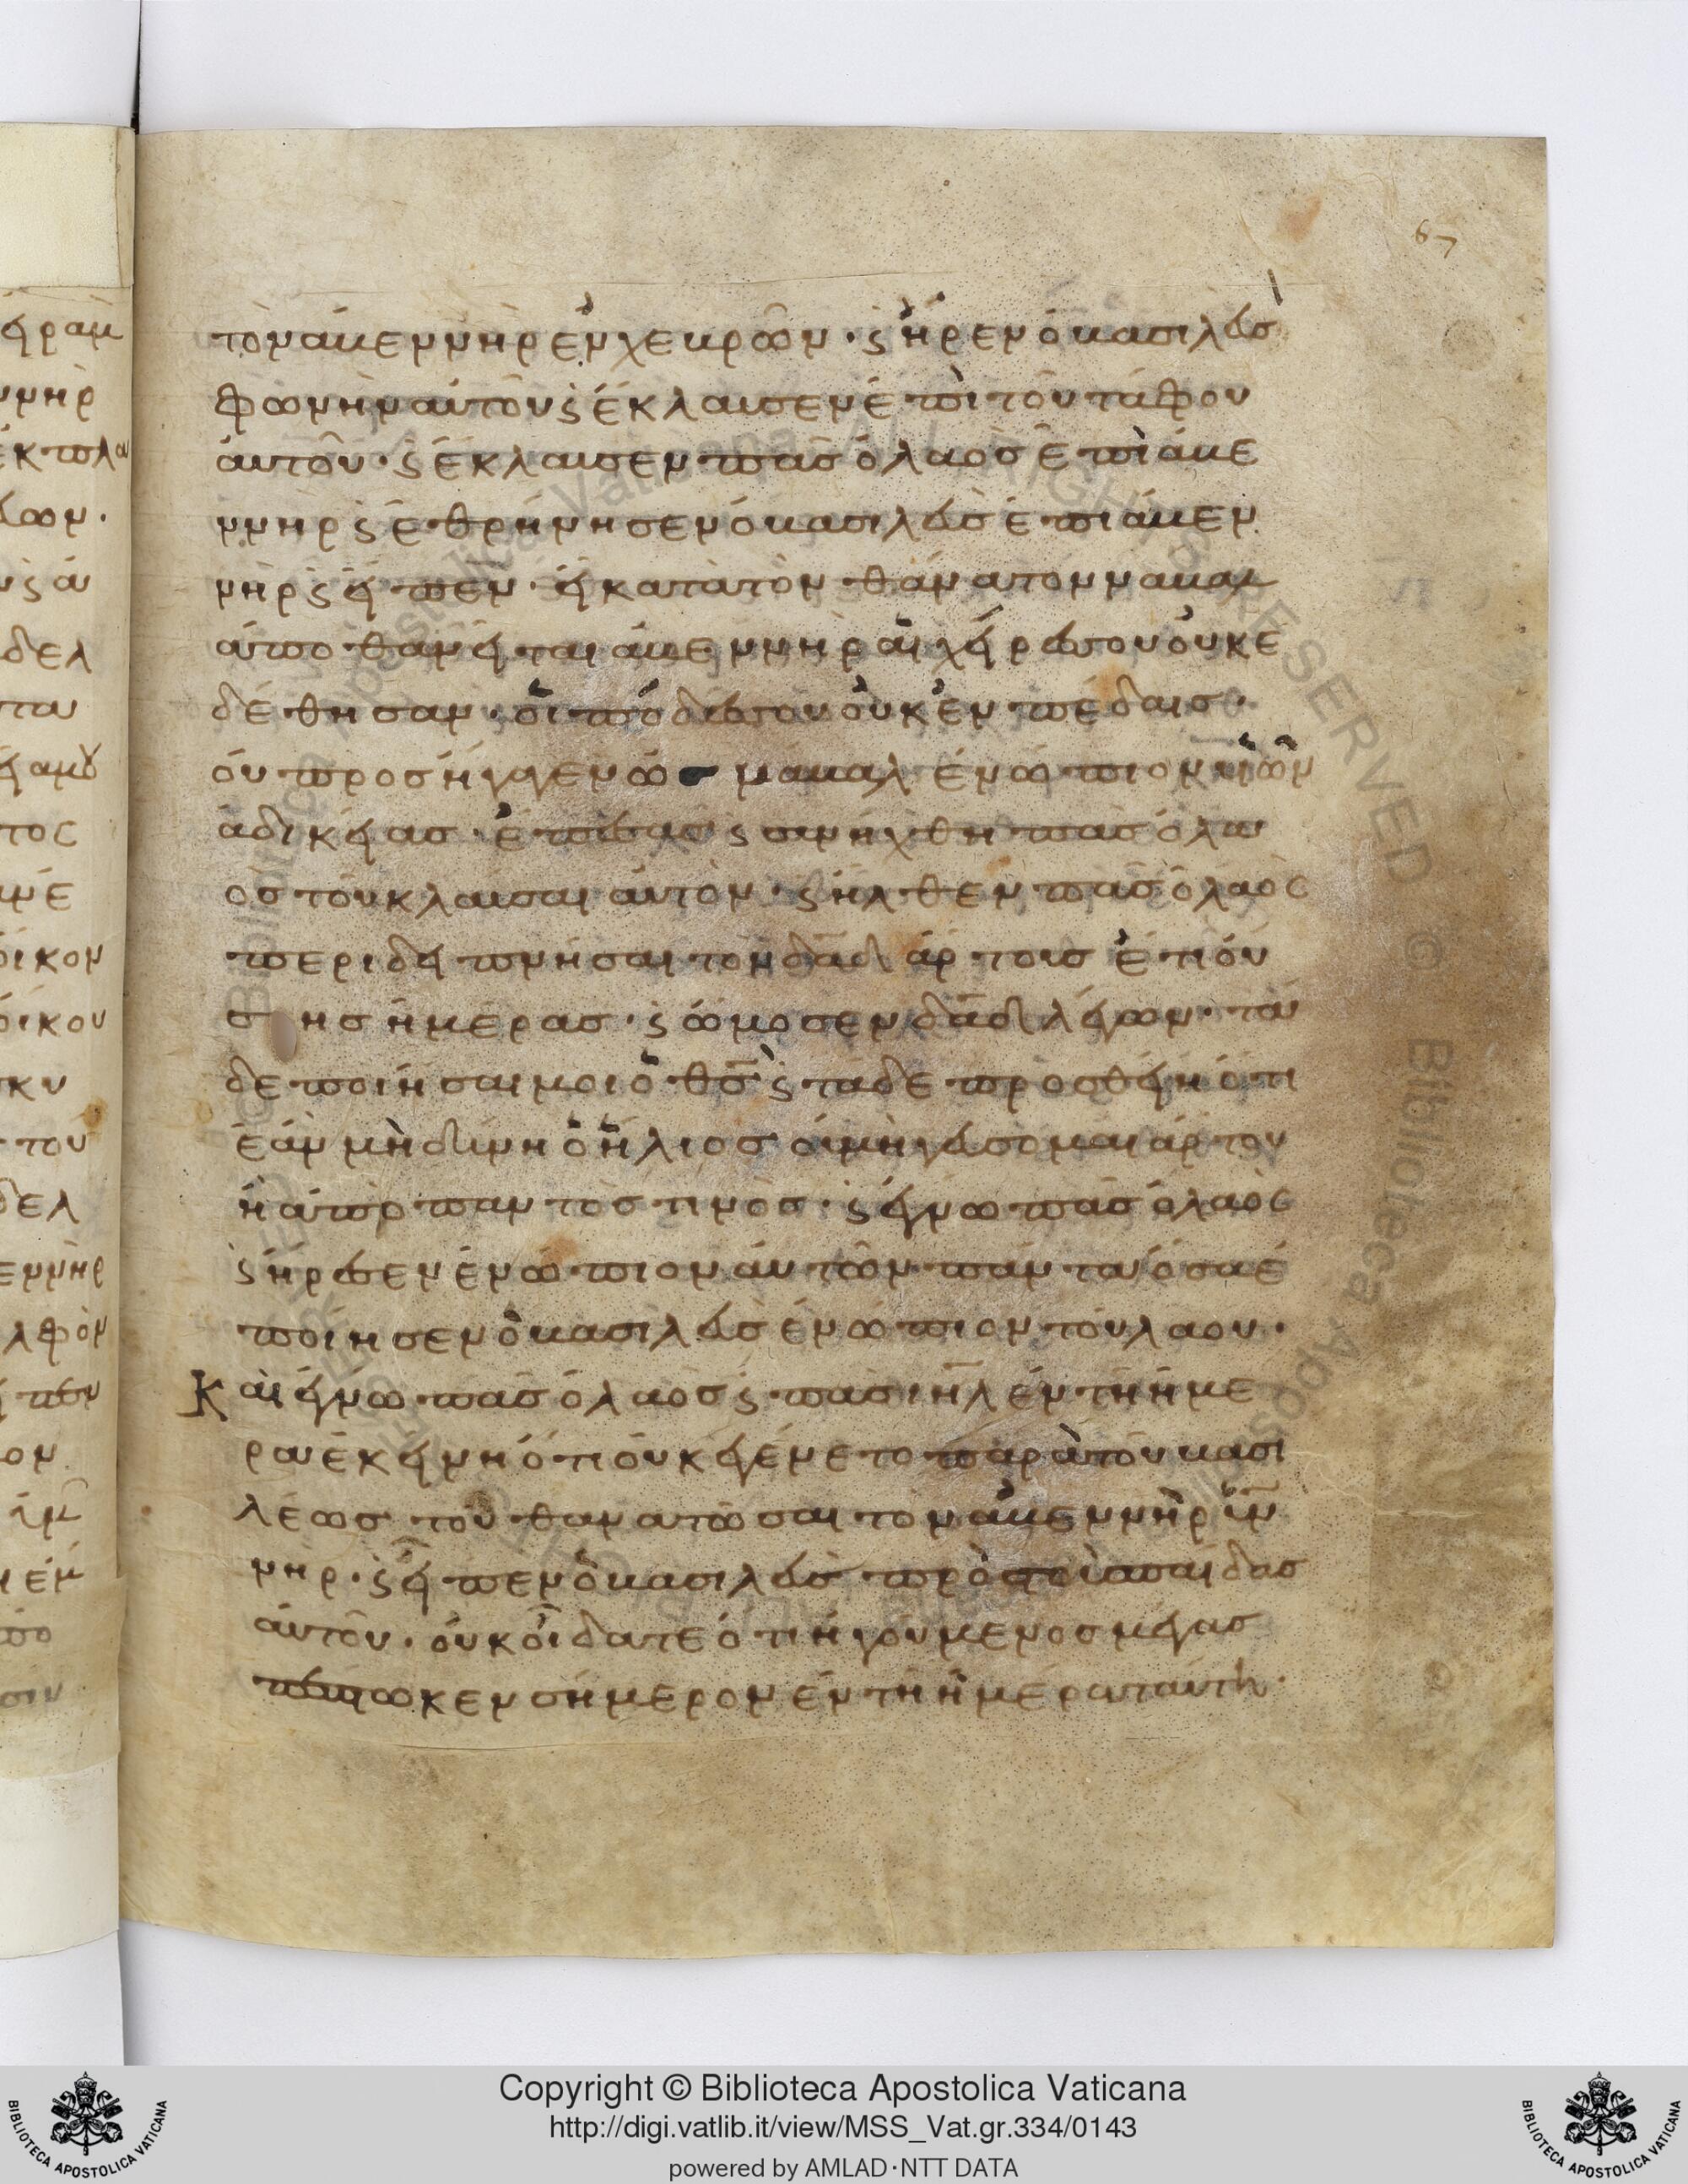 67
τὸν ἀβεννὴρ ἐν χεβρῶν · ϛ ἦρεν ὁ βασιλεὺσ
φωνὴν αὐτοῦ ϛ ἔκλαυσεν ἐπὶ τοῦ τάφου
αὐτοῦ · ϛ ἔκλαυσεν πᾶσ ὁ λαὸσ ἐπὶ ἀβε
ννηρ ϛ ἐθρήνησεν ὁ βασιλεὺσ ἐπι ἀβεν
νὴρ ϛ εἶπεν · εἰ κατὰ τὸν θάνατον ναβαλ
ἀποθανεῖται ἀβεννηρ αἱ χεῖρεσ σου οὐκ ἐ
δέθησαν · οἱ πόδεσ σου οὐκ ἐν πέδαισ ·
οὐ προσήγαγεν ὡ ναβαλ ἐνώπιον υἱῶν
ἀδικείασ · ἔπεσασ ϛ συνήχθη πᾶσ ὁ λα
οσ τοῦ κλαυσαι αὐτὸν · ϛ ἦλθεν πᾶσ ὁ λαὸς
περιδειπνῆσαι τὸν δᾱδ ἀρτοισ ἔτι οὔ
σησ ἡμέρασ · ϛ ὤμοσεν δᾱδ λέγων · τά
δε ποιήσαι μοι ὁ θ̅σ̅ ϛ τάδε προσθείη ὅτι
ἐὰν μὴ δύνη ὁ ἥλιοσ οὐ μὴ γεύσομαι ἄρτου
ἢ ἀπὸ παντόσ τινόσ · ϛ ἔγνω πᾶσ ὁ λαὸς
ϛ ἤρεσεν ἐνώπιον αὐτῶν πάντα ὅσα ἐ
ποίησεν ὁ βασιλεὺσ ἐνώπιον τοῦ λαου ·
Καὶ ἔγνω πᾶσ ὁ λαὸσ ϛ πᾶσ ι̅η̅λ̅ ἐν τῆ ἡμε
ρα ἐκείνη ὅτι οὐκ ἐγένετο παρὰ τοῦ βασι
λέωσ τοῦ θανατῶσαι τὸν ἀβεννὴρ υ̅ν̅
νηρ · ϛ εἶπεν ὁ βασιλεὺσ πρὸσ τοὺσ παῖδασ
αὐτοῦ · οὐκ οἴδατε ὅτι ἡγούμενοσ μέγασ
πέπτωκεν σήμερον ἐν τῆ ἡμέρα ταύτη ·
Copyright © Biblioteca Apostolica Vaticana
http://digi.vatlib.it/view/MSS_Vat.gr.334/0143
powered by AMLAD·NTT DATA